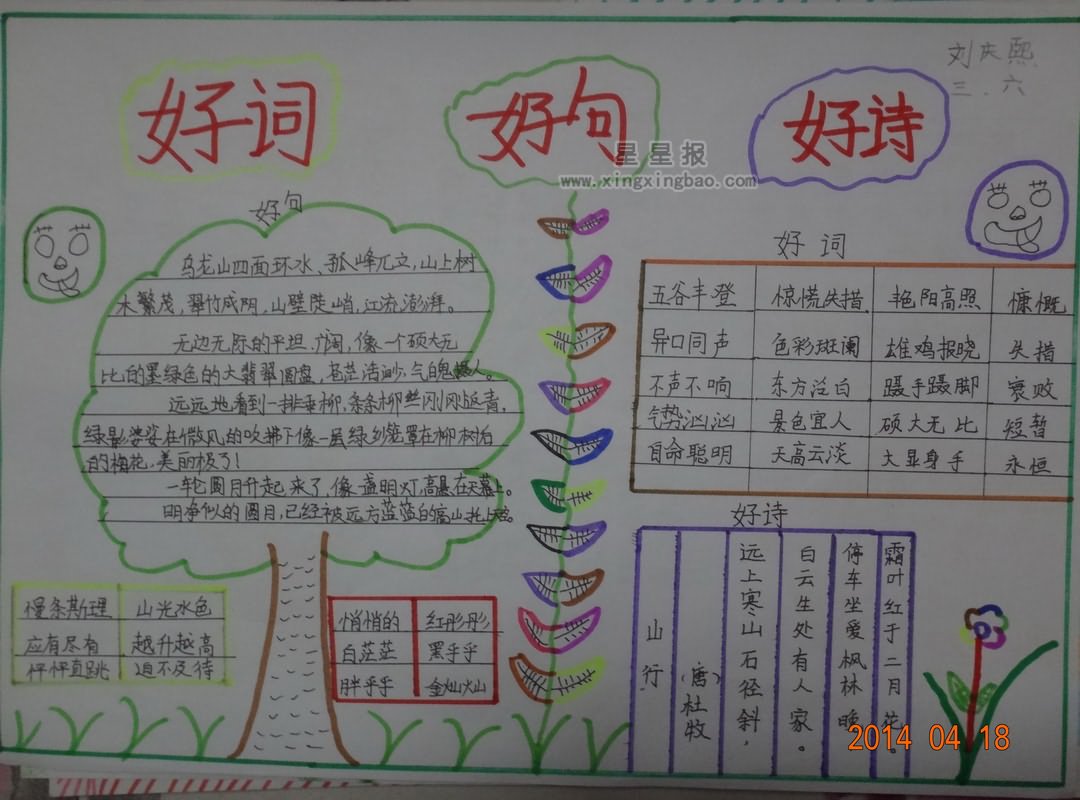 刘庆熙
三.六
好词
好句
好诗
星星报
www.xingxingbao.com
好句
乌龙山四面环水、孤峰兀立,山上树
木繁茂,翠竹成阴,山壁陡峭,江流澎湃。
无边无际的平坦、广阔,像一个硕大无
比的墨绿色的大翡翠圆盘,苍茫浩渺、气魄摄人。
远远地看到一排垂柳,条条柳丝刚刚返青,
绿影婆娑在微风的吹拂下像一层绿纱笼罩在柳树后
的梅花,美丽极了!
一轮圆月升起来了,像一盏明灯,高悬在天幕上。
明净似的圆月,已经被远方蓝蓝的高山托上天空。
慢条斯理 山光水色
应有尽有 越升越高
怦怦直跳 迫不及待
悄悄的 红彤彤
白茫茫 黑乎乎
胖乎乎 金灿灿
好词
五谷丰登 惊慌失措 艳阳高照 慷慨
异口同声 色彩斑阑 雄鸡报晓 失措
不声不响 东方泛白 蹑手蹑脚 衰败
气势汹汹 景色宜人 硕大无比 短暂
自命聪明 天高云淡 大显身手 永恒
好诗
山行
(唐)杜牧
远上寒山石径斜,
白云生处有人家。
停车坐爱枫林晚
霜叶红于二月花。
2014 04 18